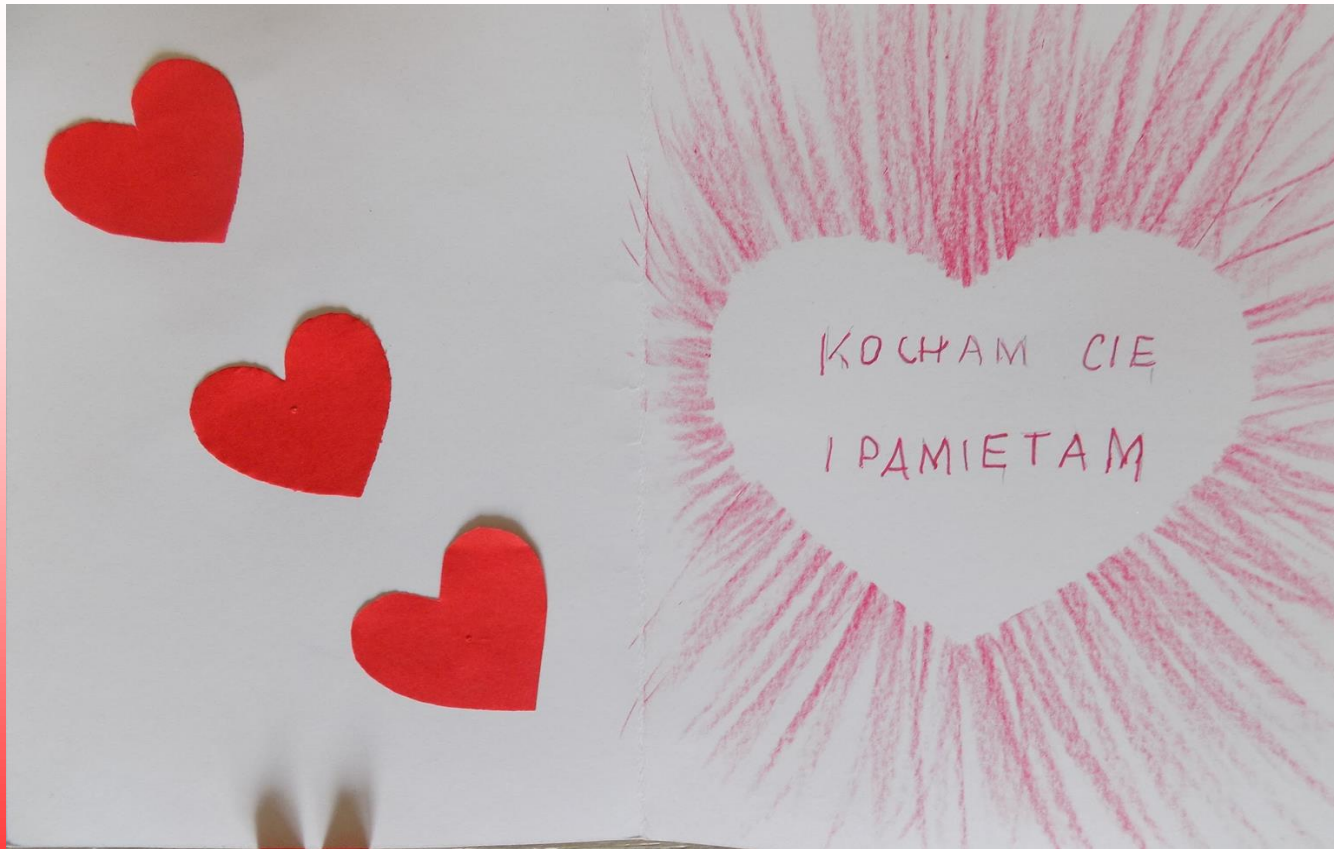 KOCHAM CIE
I PAMIETAM